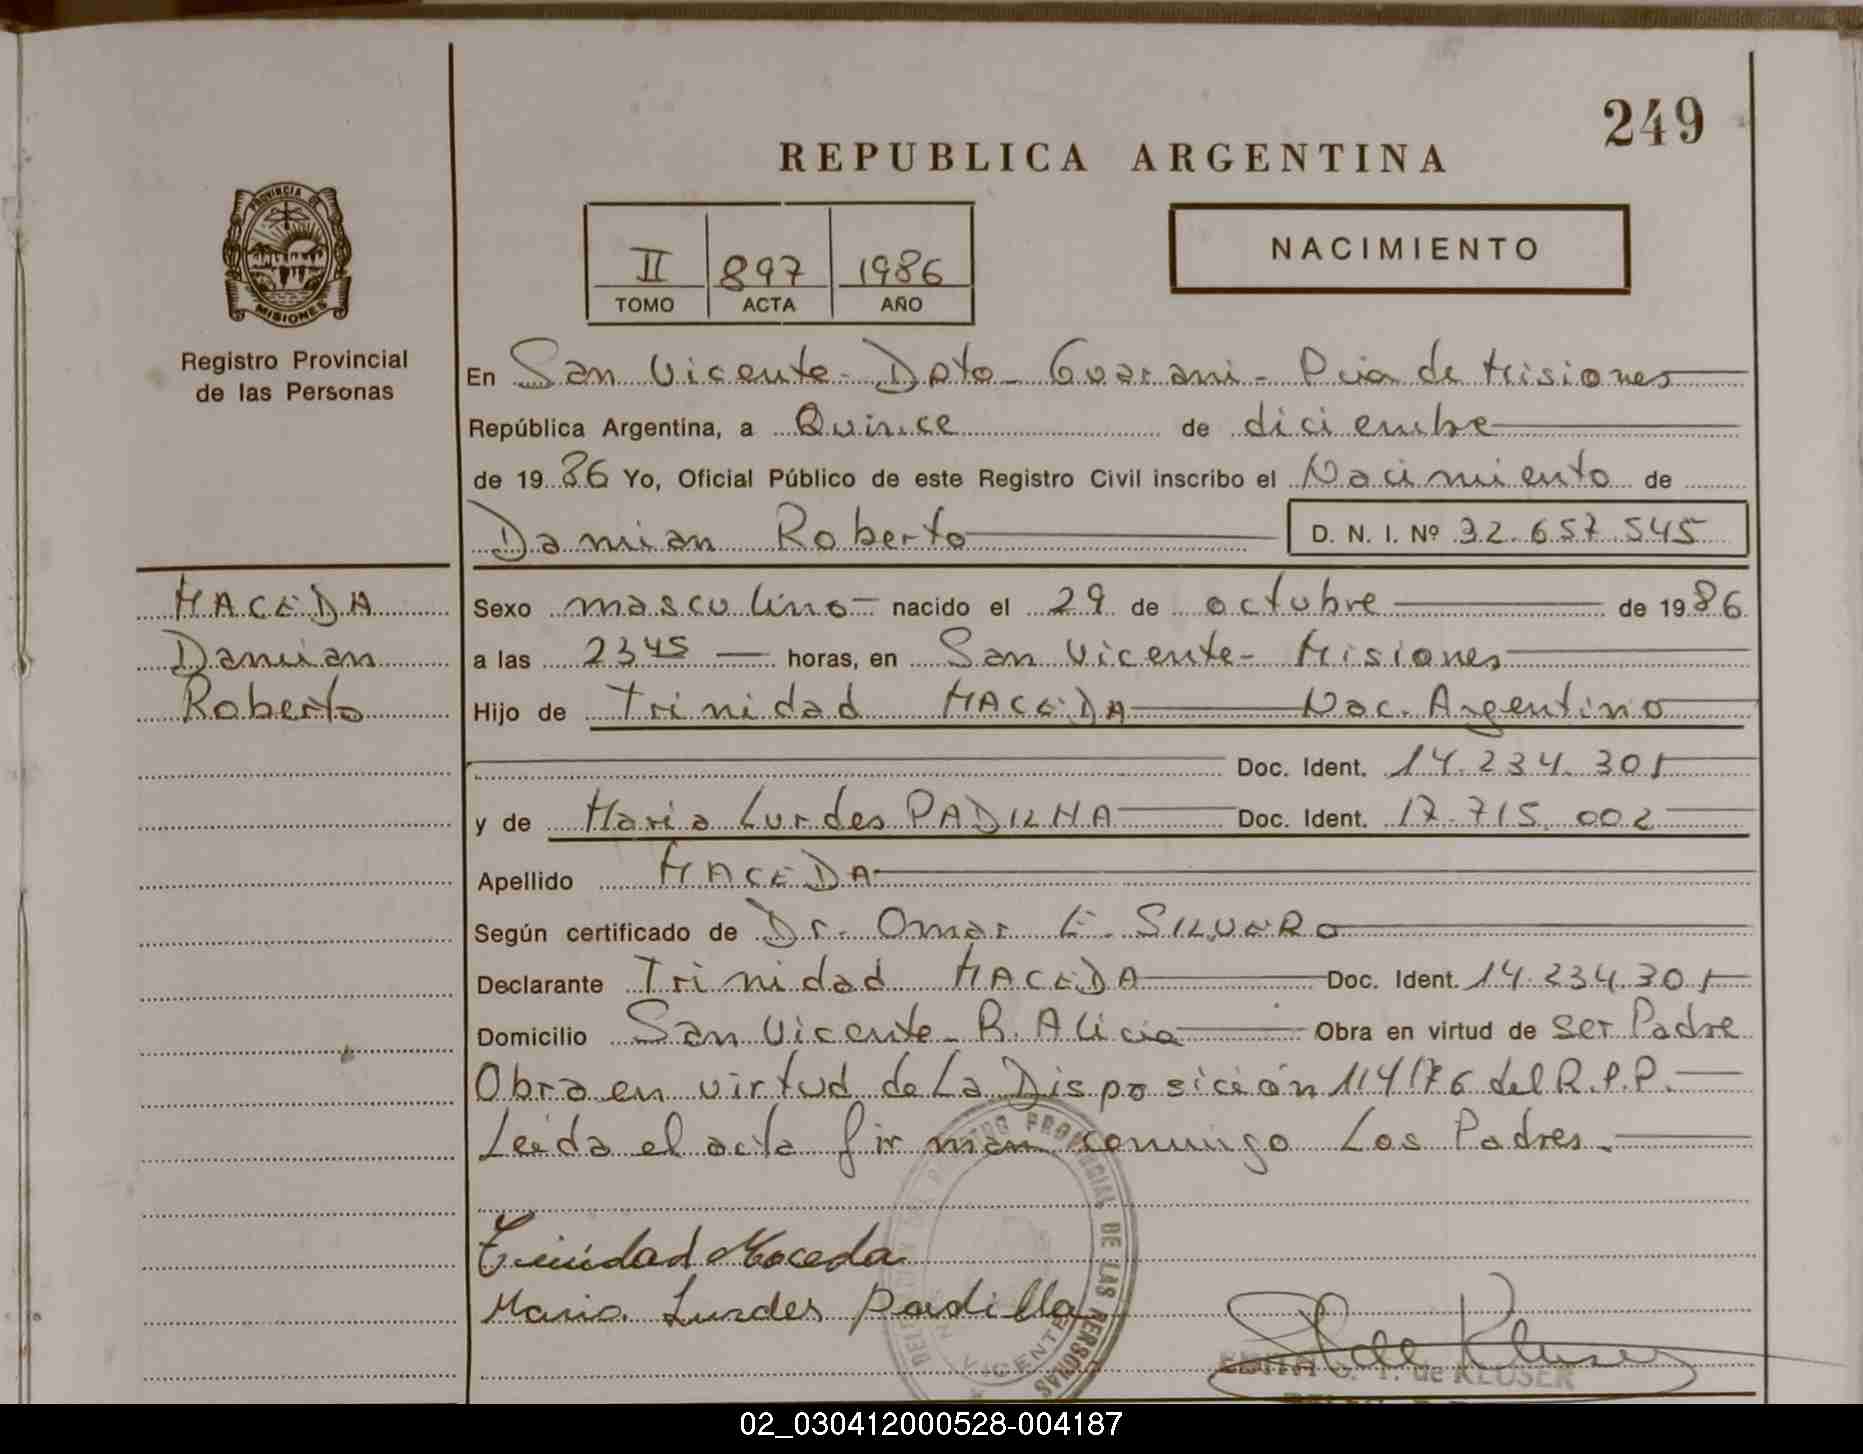 249
REPUBLICA ARGENTINA
PROVINCIA DE
MISIONES
Registro Provincial
de las Personas
II 897 1986
TOMO ACTA AÑO
NACIMIENTO
En San Vicente - Dpto - Guarani - Pcia de Misiones
República Argentina, a Quince de diciembre
de 1986 Yo, Oficial Público de este Registro Civil inscribo el Nacimiento de
Damian Roberto D. N. I. Nº 32.657.545
MACEDA
Damian
Roberto
Sexo masculino nacido el 29 de octubre de 1986
a las 2345 horas, en San Vicente - Misiones
Hijo de Trinidad MACEDA Nac. Argentino
Doc. Ident. 14.234.301
y de Maria Lurdes PADILHA Doc. Ident. 17.715.002
Apellido MACEDA
Según certificado de Dr. Omar E. SILVERO
Declarante Trinidad MACEDA Doc. Ident. 14.234.301
Domicilio San Vicente - B. Alicia Obra en virtud de ser Padre
Obra en virtud de La Disposición 114/76 del R.P.P.
Leida el acta firman conmigo Los Padres.
Trinidad Maceda
Maria Lurdes Padilla
PROVINCIAL DE LAS PERSONAS
VICENTE
de KLUSER
02_030412000528-004187